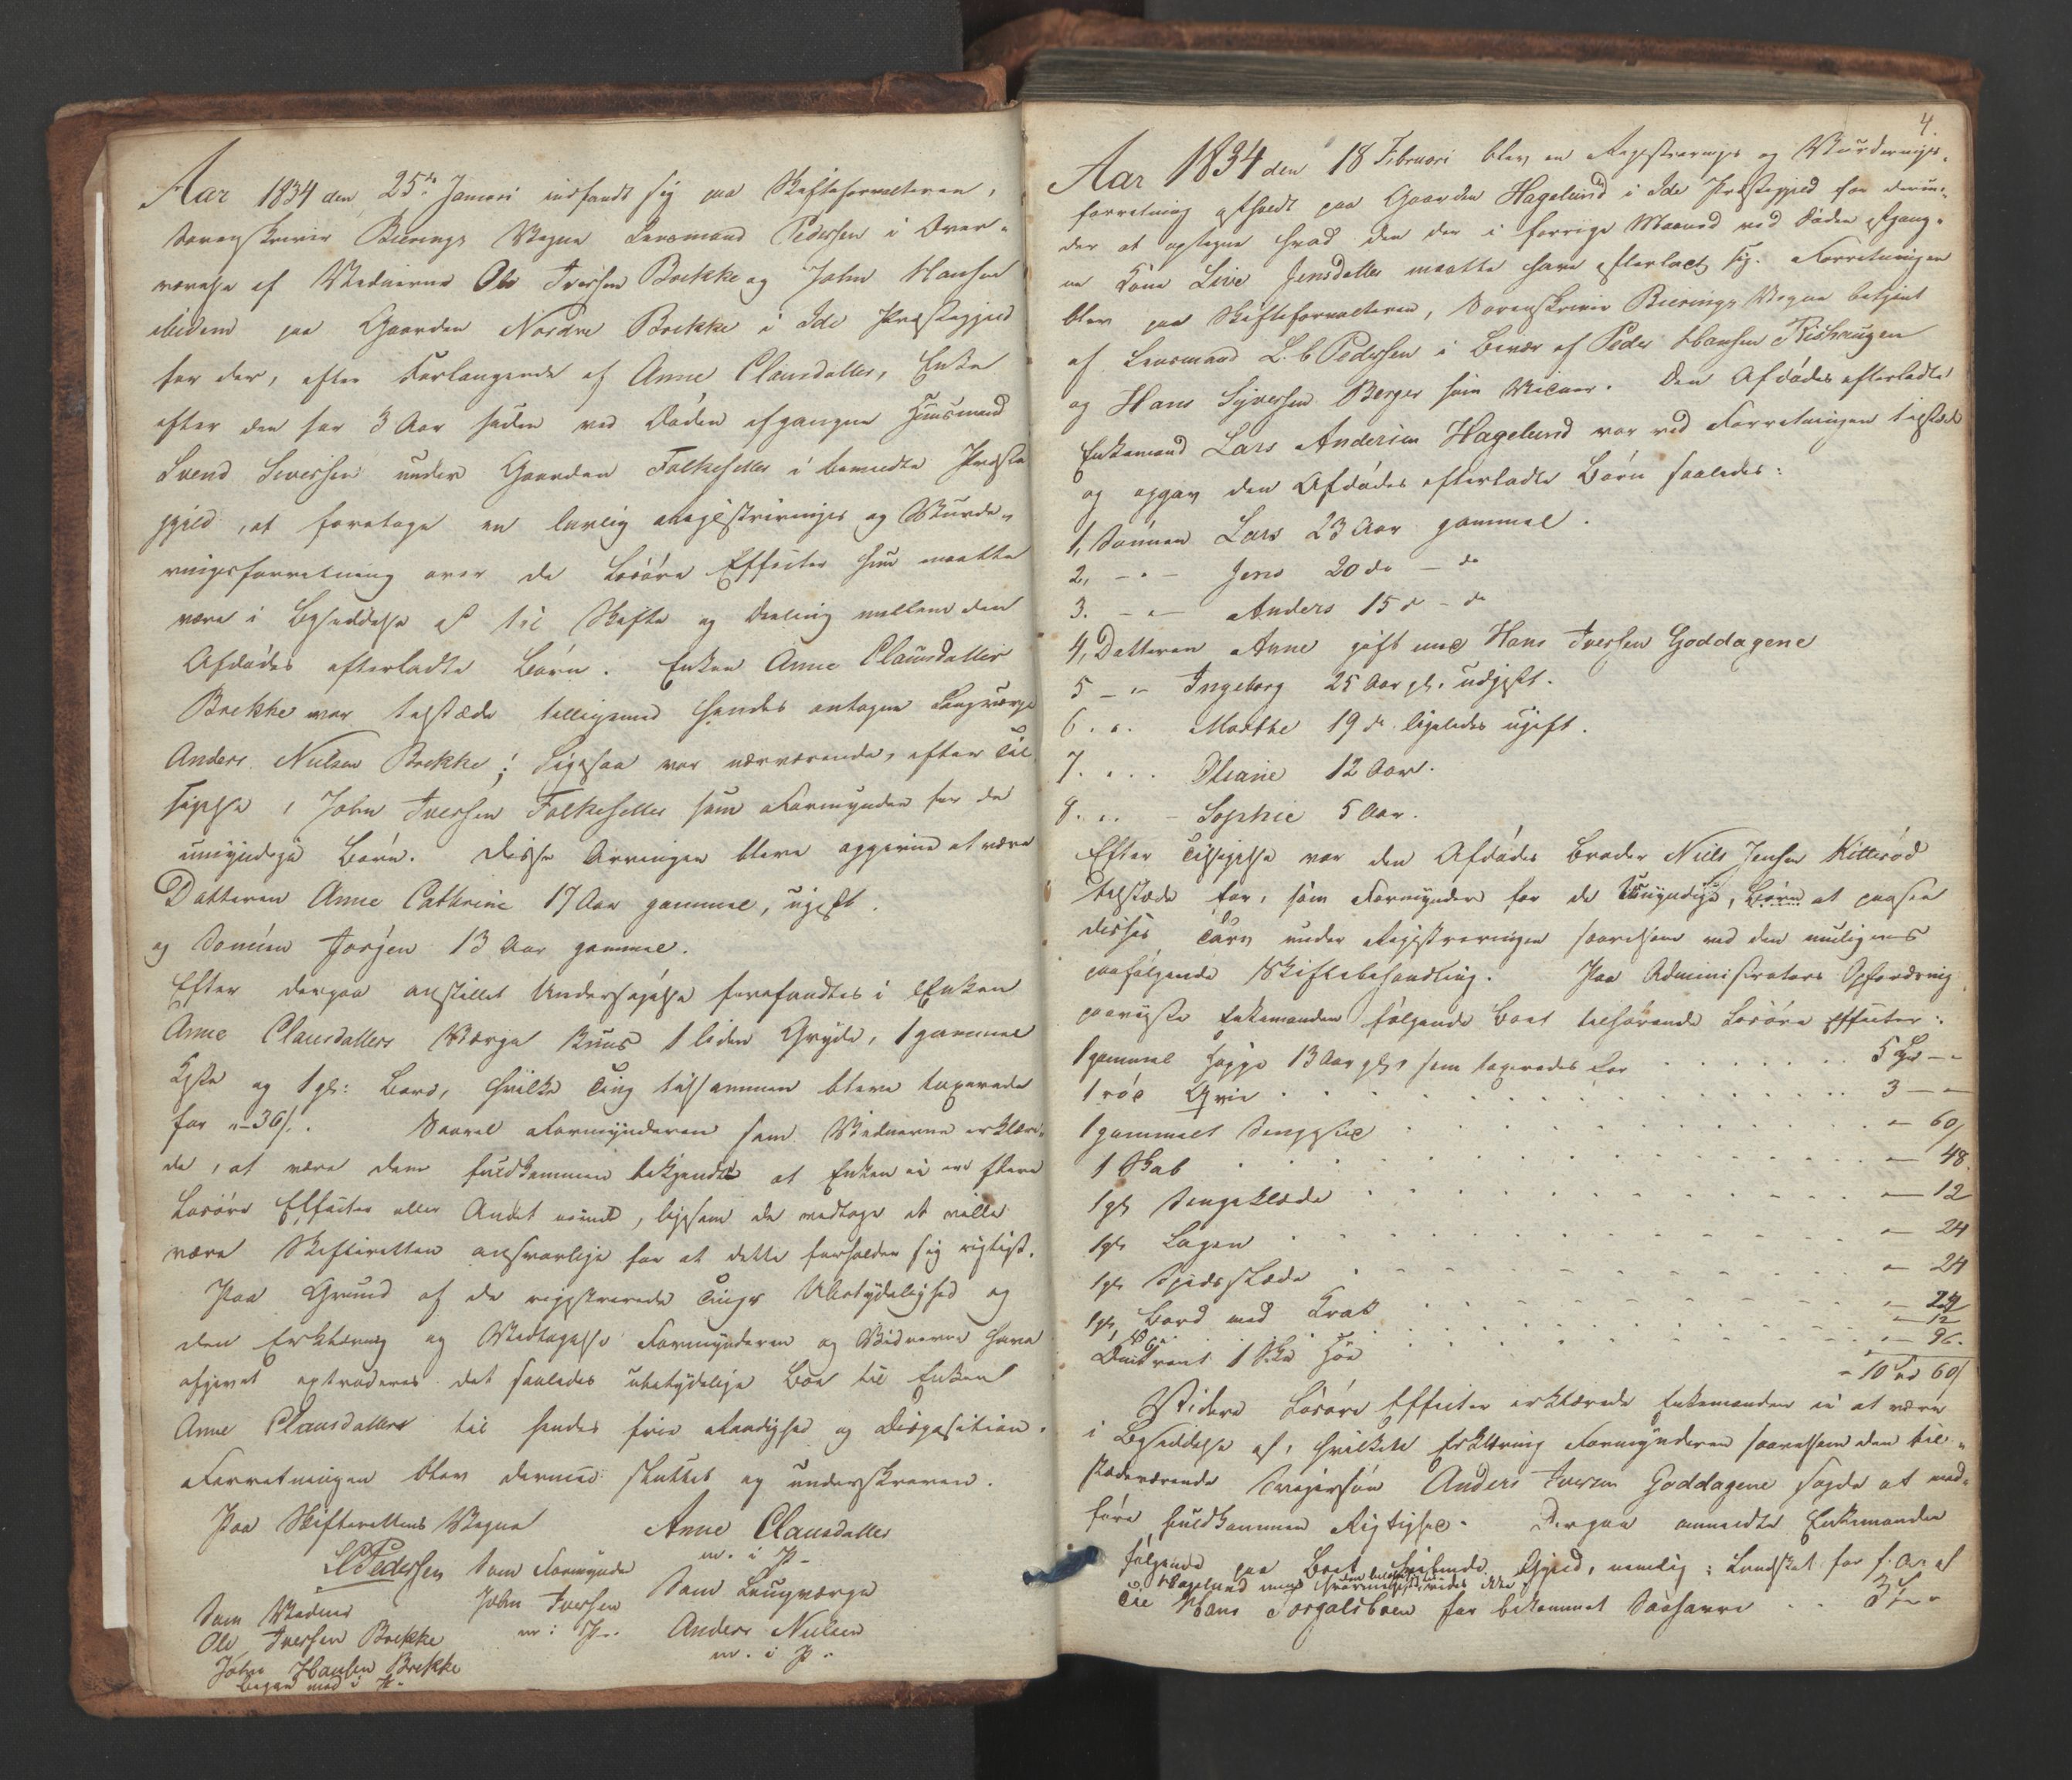 Aar 1834 den 25de Januari indfandt sig paa Skifteforvalteren,
Sorenskriver Bierings Vegne Lensmand Pedersen i Over-
værelse af Vidnerne Ole Iversen Brekke og John Hansen
ibidem paa Gaarden Nordre Brekke i Ide Præstegjeld
for der, efter Forlangende af Anne Clausdatter, Enke
efter den for 3 Aar siden ved Døden afgangne Huusmand
Svend Siversen under Gaarden Folkesetter i bemeldte Præste
gjeld, at foretage en lovlig Registrerings og Vurde-
ringsforretning over de Løsøre Effecter hun maatte
være i Besiddelse af til Skifte og Deeling mellem den
Afdødes efterladte Børn. Enken Anne Clausdatter
Brekke var tilstæde tilligemed hendes antagne Laugværge
Anders Nielsen Brekke; Ligesaa var nærværende, efter Til
sigelse, John Iversen Folkesetter som Formynder for de
umyndige Børn. Disse Arvinger bleve opgivne at være
Datteren Anne Cathrine 17 Aar gammel, ugift.
og Sønnen Jørgen 13 Aar gammel.
Efter derpaa anstillet Undersøgelse forefandtes i Enken
Anne Clausdatters Værge Kuns 1 liden Gryde, 1 gammel
Kiste og 1 gl: Bord, hvilke Ting tilsammen bleve taxerede
for "-36/. Saavel Formynderen som Vidnerne erklære-
de, at være dem fuldkommen bekjendt at Enken ei eier flere
Løsøre Effecter eller Andet eiende, ligesom de vedtoge at ville
være Skifteretten ansvarlige for at dette forholder sig rigtigt.
Paa Grund af de registrerede Tings Ubetydelighed og
den Erklæring og Vedtagelse Formynderen og Vidnerne have
afgivet extraderes det saaledes ubetydelige Boe til Enken
Anne Clausdatter til hendes frie Raadighed og Disposition.
Forretningen blev dermed sluttet og underskreven.
Paa Skifterettens Vegne
LCPedersen
Anne Clausdatter
m. i P.
Som Formynder
John Iversen
m: i P.
Som Laugværge
Anders Nielsen
m. i P.
Som Vidner
Ole Iversen Brekke
John Hansen Brekke
Begge med i P.
4.
Aar 1834 den 18 Februari blev en Registrerings og Vurderings-
forretning afholdt paa Gaarden Hagelund i Ide Præstegjeld for derun-
der at optegne hvad den der i forrige Maaned ved Døden afgang-
ne Kone Live Jensdatter maatte have efterladt sig. Forretningen
blev paa Skifteforvalteren, Sorenskriver Bierings Vegne betjent
af Lensmand L. C Pedersen i Overvær af Peder Hansen Rishaugen
og Hans Syversen Berger som Vidner. Den Afdødes efterladte
Enkemand Lars Andersen Hagelund var ved Forretningen tilstæde
og opgav den Afdødes efterladte Børn saaledes:
1, Sønnen Lars 23 Aar gammel.
2, - " - Jens 20 do - do
3. - " - Anders 15 do - do
4, Datteren Anne gift med Hans Iversen Goddagene
5 - " - Ingeborg 25 Aar gl. udgift.
6. ". Marthe 19 do ligeledes ugift.
7. . . . Oleane 12 Aar.
8. . . - Sophie 5 Aar.
Efter Tilsigelse var den Afdødes Broder Niels Jensen Kitterød
tilstæde for, som Formynder for de Umyndige, Børn at paasee
disses Tarv under Registreringen saavelsom ved den muligens
paafølgende Skiftebehandling. Paa Administrators Opfordring
paaviste Enkemanden følgende Boet tilhørende Løsøre Effecter:
1 gammel Hoppe 13 Aar gl, som taxeredes for . . . . . 5 Spd - "
1 rød Qvie . . . . . 3 - "
1 gammelt Sengested . . . . . " - 60/
1 Skab . . . . . " - 48.
1 gl Sengeklæde . . . . . " - 12
1 gl Lagen . . . . . " - 24
1 gl Spidsslæde . . . . . " - 24
1 gl, Bord med Krak . . . . . " - 24
" - 12
1 Skd Høe . . . . . " - 96.
- 10 Spd 60/
Videre Løsøre Effecter erklærede Enkemanden ei at være
i Besiddelse af, hvilken Erklæring Formynderen saavelsom den til-
stædeværende Svigersøn Anders Iversen Goddagene sagde at med-
føre fuldkommen Rigtighed. Derpaa anmeldte Enkemanden
følgende paa Boet heftende Gjeld, nemlig: Landskat for f. A. af
Hagelund
Til Hans Torgalsboen for bekommet Sæd . . 3 -